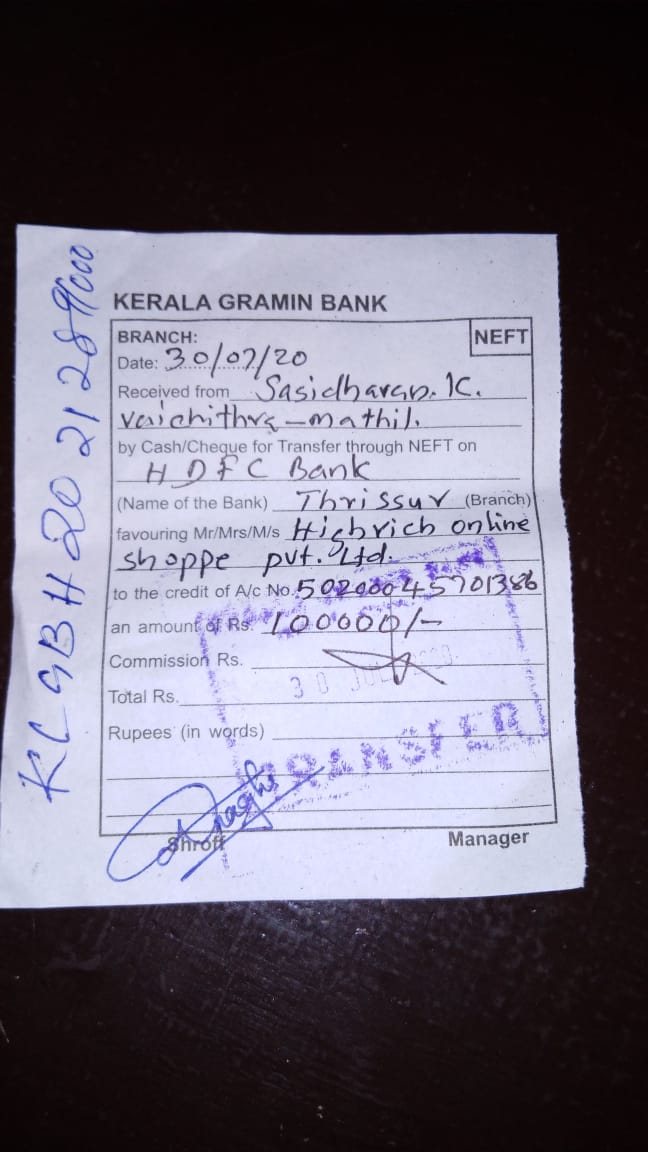 KERALA GRAMIN BANK
BRANCH:
NEFT
Date: 30/07/20
Received from Sasidharan. K.
Vaichithra - mathil.
by Cash/Cheque for Transfer through NEFT on
HDFC Bank
(Name of the Bank) Thrissur (Branch)
favouring Mr/Mrs/M/s Highrich online
shoppe pvt. Ltd.
to the credit of A/c No. 50200045701386
an amount of Rs. 100000/-
Commission Rs.
30 JUL 2020
Total Rs.
Rupees (in words)
TRANSFER
Shroff
Manager